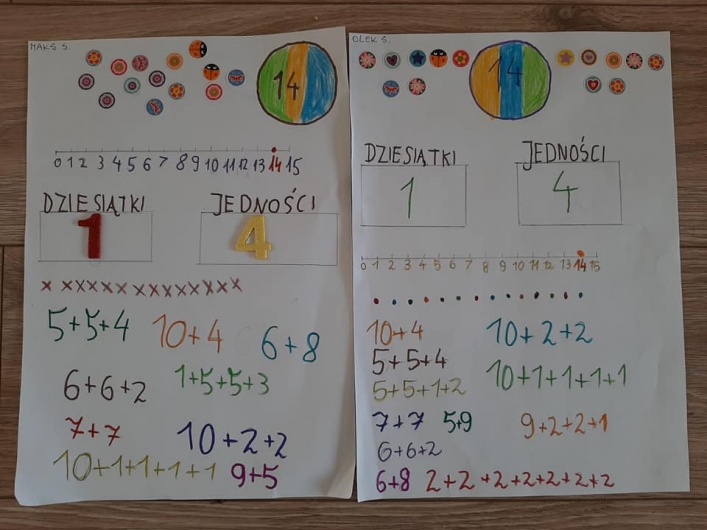 MAKS S.
14
0 1 2 3 4 5 6 7 8 9 10 11 12 13 14 15
DZIESIĄTKI JEDNOŚCI
1 4
5+5+4 10+4 6+8
6+6+2 1+5+5+3
7+7 10+2+2
10+1+1+1+1 9+5
OLEK S.
14
DZIESIĄTKI JEDNOŚCI
1 4
0 1 2 3 4 5 6 7 8 9 10 11 12 13 14 15
10+4 10+2+2
5+5+4
5+5+1+2 10+1+1+1+1
7+7 5+9 9+2+2+1
6+6+2
6+8 2+2+2+2+2+2+2